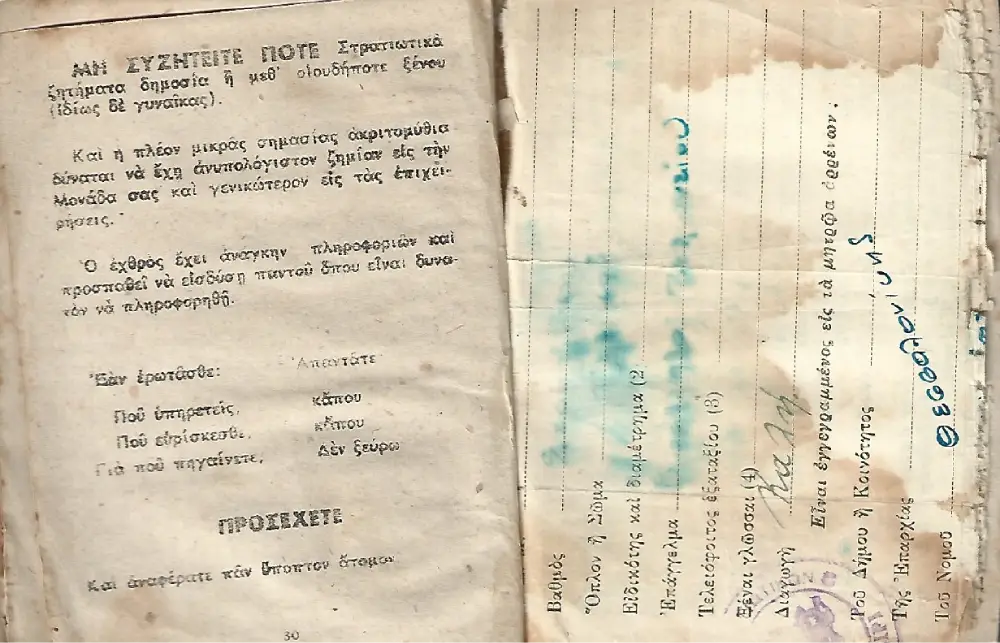 ΜΗ ΣΥΖΗΤΕΙΤΕ ΠΟΤΕ Στρατιωτικὰ
ζητήματα δημοσία ἢ μεθ' οἱουδήποτε ξένου
(ἰδίως δὲ γυναῖκας).
Καὶ ἡ πλέον μικρᾶς σημασίας ἀκριτομυθία
δύναται νὰ ἔχῃ ἀνυπολόγιστον ζημίαν εἰς τὴν
Μονάδα σας καὶ γενικώτερον εἰς τὰς ἐπιχει-
ρήσεις.
Ὁ ἐχθρὸς ἔχει ἀνάγκην πληροφοριῶν καὶ
προσπαθεῖ νὰ εἰσδύσῃ παντοῦ ὅπου εἶναι δυνα-
τὸν νὰ πληροφορηθῇ.
Ἐὰν ἐρωτᾶσθε: Ἀπαντᾶτε
Ποῦ ὑπηρετεῖς, κἄπου
Ποῦ εὑρίσκεσθε, κἄπου
Γιὰ ποῦ πηγαίνετε, Δὲν ξεύρω
ΠΡΟΣΕΧΕΤΕ
Καὶ ἀναφέρατε πᾶν ὕποπτον ἄτομον
30
Βαθμὸς
Ὅπλον ἢ Σῶμα
Εἰδικότης καὶ διαμέτρημα (2
Ἐπάγγελμα
Τελειόφοιτος ἐξαταξίου (3)
Ξέναι γλῶσσαι (4)
Διαγωγὴ Καλὴ
Εἶναι ἐγγεγραμμένος εἰς τὰ μητρῷα ἀρρένων.
Τοῦ Δήμου ἢ Κοινότητος
Τῆς Ἐπαρχίας Θεσσαλονίκης
Τοῦ Νομοῦ